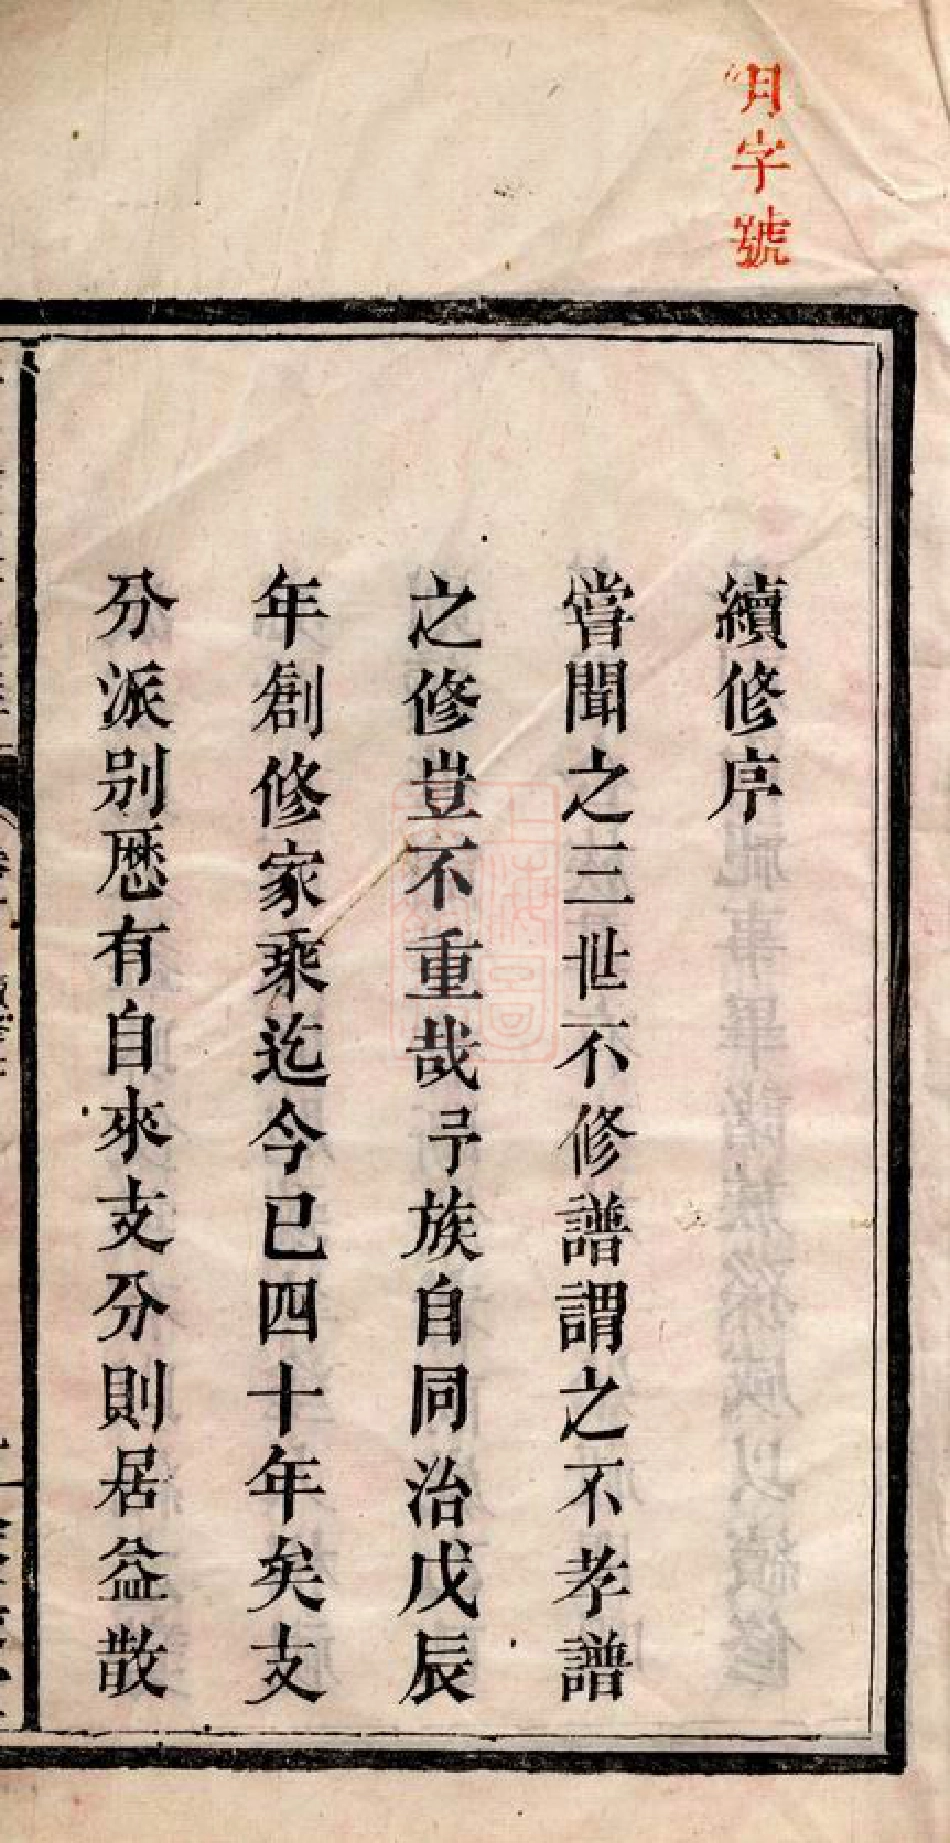 月字號
續修序
嘗聞之三世不修譜謂之不孝譜
之修豈不重哉予族自同治戊辰
年創修家乘迄今已四十年矣支
分派别歷有自來支分則居益散